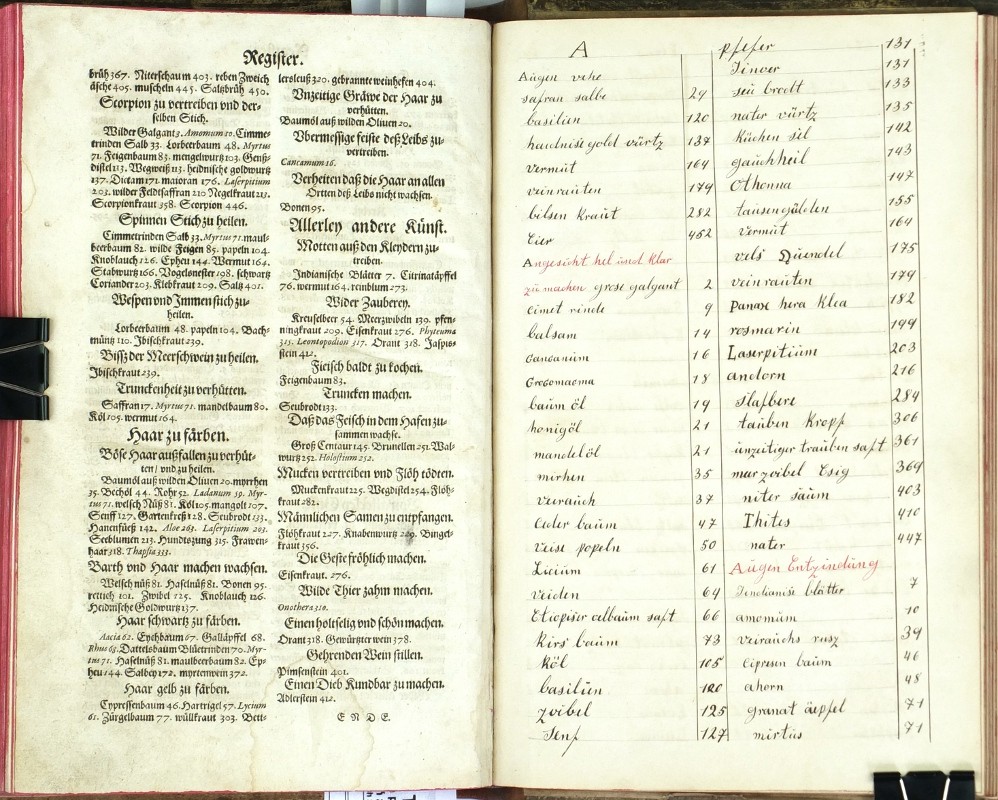 Register.
brüh 367. Niterschaum 403. reben Zweich
äsche 405. muscheln 445. Saltzbrüh 450.
Scorpion zu vertreiben vnd der-
selben Stich.
Wilder Galgant 3. Amomum 10. Cimme-
trinden Salb 33. Lorbeerbaum 48. Myrtus
71. Feigenbaum 83. mengelwurtz 103. Genß-
distel 113. Wegweiß 113. heidnische goldwurtz
137. Dictam 171. maioran 176. Laserpitium
203. wilder Feldtsaffran 210 Negelkraut 213.
Scorpionkraut 358. Scorpion 446.
Spinnen Stich zu heilen.
Cimmetrinden Salb 33. Myrtus 71. maul-
beerbaum 82. wilde Feigen 85. papeln 104.
Knoblauch 126. Epheu 144. Wermut 164.
Stabwurtz 166. Vogelsnester 198. schwartz
Coriander 203. Klebkraut 209. Saltz 401.
Wespen vnd Immen stich zu-
heilen.
Lorbeerbaum 48. papeln 104. Bach-
müntz 110. Jbischkraut 239.
Bissz der Meerschwein zu heilen.
Jbischkraut 239.
Trunckenheit zu verhütten.
Saffran 17. Myrtus 71. mandelbaum 80.
Köl 105. wermut 164.
Haar zu färben.
Böse Haar außfallen zu verhüt-
ten/ vnd zu heilen.
Baumöl auß wilden Oliuen 20. myrrhen
35. Bechöl 44. Rohr 52. Ladanum 59. Myr-
tus 71. welsch Nüß 81. Köl 105. mangolt 107.
Senff 127. Gartenkreß 128. Seubrodt 133.
Hanenfüeß 142. Aloe 263. Laserpitium 203.
Seeblumen 213. Hundtszung 315. Frawen-
haar 318. Thapsia 333.
Barth vnd Haar machen wachsen.
Welsch nüß 81. Haselnüß 81. Bonen 95.
rettich 101. Zwibel 125. Knoblauch 126.
Heidnische Goldwurtz 137.
Haar schwartz zu färben.
Aacia 62. Eychbaum 67. Galläpffel 68.
Rhus 68. Dattelsbaum Blüetrinden 70. Myr-
tus 71. Haselnüß 81. maulbeerbaum 82. Ep-
heu 144. Salbey 172. myrtenwein 372.
Haar gelb zu färben.
Cypressenbaum 46. Hartrigel 57. Lycium
61. Zürgelbaum 77. wüllkraut 303. Bett-
lersleuß 320. gebrannte weinhefen 404.
Vnzeitige Gräwe der Haar zu
verhütten.
Baumöl auß wilden Oliuen 20.
Vbermessige feiste deß Leibs zu-
vertreiben.
Cancamum 16.
Verheiten daß die Haar an allen
Ortten deß Leibs nicht wachsen.
Bonen 95.
Allerley andere Künst.
Motten auß den Kleydern zu-
treiben.
Indianische Blätter 7. Citrinatäpffel
76. wermut 164. reinblum 273.
Wider Zauberey.
Kreuselbeer 54. Meerzwibeln 130. pfen-
ningkraut 209. Eisenkraut 276. Phyteuma
315. Leontopodion 317. Orant 318. Jaspis-
stein 412.
Fleisch baldt zu kochen.
Feigenbaum 83.
Truncken machen.
Seubrodt 133.
Daß das Fleisch in dem Hafen zu-
sammen wachse.
Groß Centaur 145. Brunellen 251. Wal-
wurtz 252. Holostium 252.
Mucken vertreiben vnd Flöh tödten.
Muckenkraut 125. Wegdistel 254. Flöh-
kraut 282.
Männlichen Samen zu empfangen.
Flöhkraut 227. Knabenwurtz 209. Bingel-
kraut 356.
Die Geste fröhlich machen.
Eisenkraut. 276.
Wilde Thier zahm machen.
Onothera 310.
Einen holtselig vnd schön machen.
Orant 318. Gewürtzter wein 378.
Gehrenden Wein stillen.
Pimsenstein 401.
Einen Dieb Kundbar zu machen.
Adlerstein 412.
E N D E.
A
Augen vehe
safran salbe 24
basilien 120
haidnise gold vürtz 137
vermüt 164
veinrauten 179
bilsen Kraut 282
Eier 452
Angesicht hel und klar
zü machen grose galgant 2
Cimet rinde 9
balsam 14
Cancanüm 16
Crocomagma 18
baüm öl 19
honigöl 21
mandelöl 21
mirhen 35
veirauch 37
Ceder baüm 47
veise popeln 50
Licium 61
veiden 64
Etiopiser oelbaum saft 66
Kirs baüm 73
Köl 105
basilien 120
zvibel 125
Senf 127
pfefer 131
Jinver 131
seü brodt 133
nater vürtz 135
Küchen sel 142
gauchheil 143
Othonna 147
tausengülden 155
vermüt 164
vels Quendel 175
veinrauten 179
Panax hera klea 182
rosmarin 199
Laserpitium 203
andorn 216
Stafbere 284
taüben Kropf 306
ünzeitiger trauben saft 361
marzvibel Esig 369
niter säüm 403
Ihites 410
nater 447
Augen Entzindüng
Jindianise blätter 7
amomüm 10
veirauchs rusz 39
Cipresen baüm 46
ahorn 48
granat äepfel 71
mirtüs 71